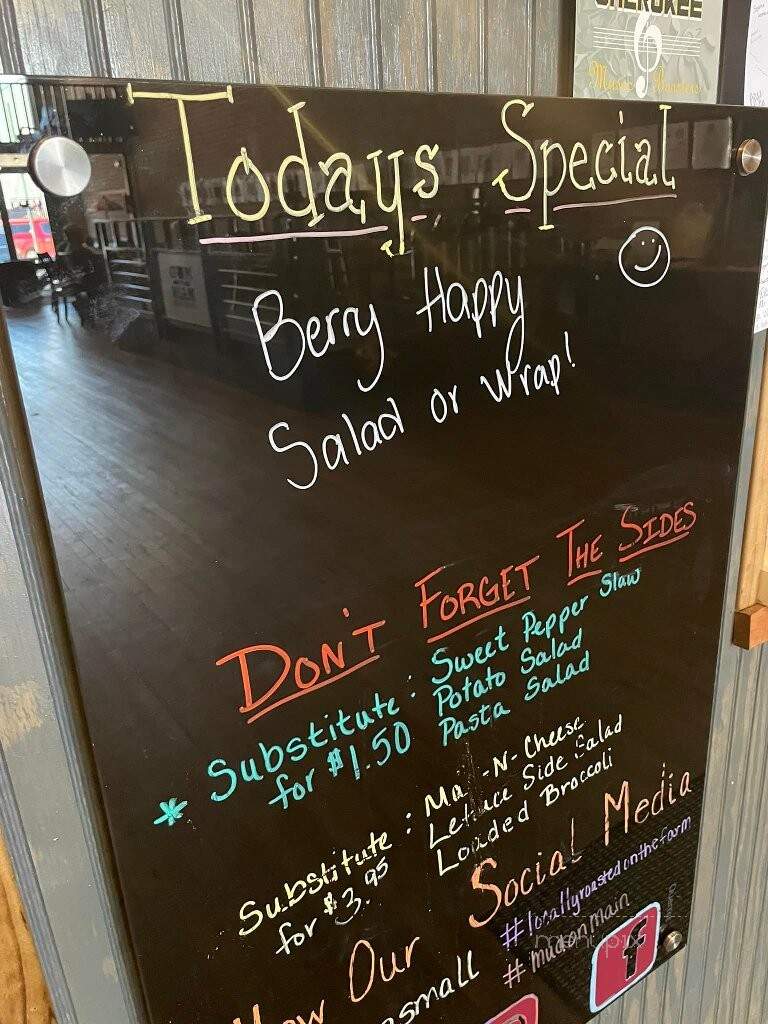 CHEROKEE
Todays Special
Berry Happy
Salad or Wrap!
DON'T FORGET THE SIDES
* Substitute: Sweet Pepper Slaw
for $1.50 Potato Salad
Pasta Salad
Substitute: Mac-N-Cheese
for $3.95 Lettuce Side Salad
Loaded Broccoli
Our Social Media
#locallyroastedonthefarm
#mudonmain
f